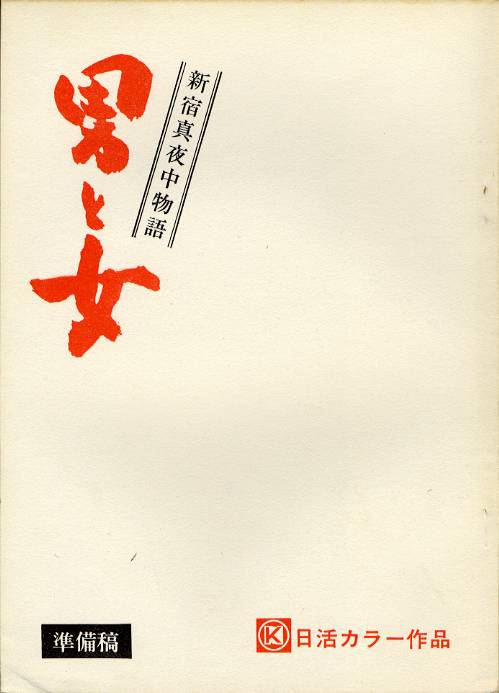 新宿真夜中物語
男と女
準備稿
K日活カラー作品